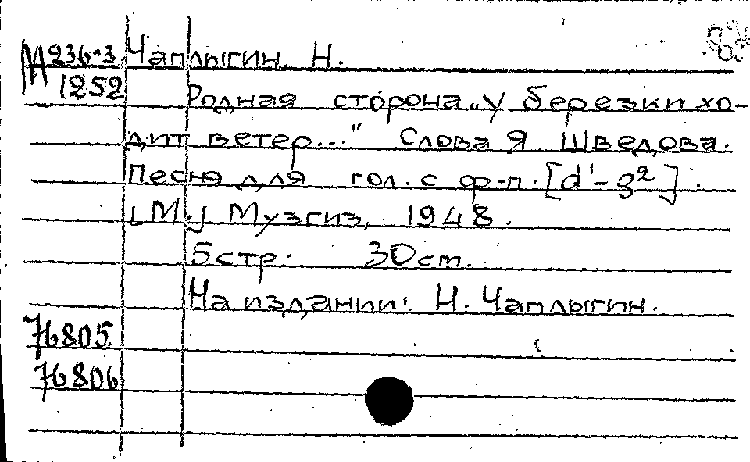 М 236-3 Чаплыгин, Н.
1252
Родная сторона „У березки хо-
дит ветер..." Слова Я. Шведова.
Песня для гол. с ф-п. [d¹-g²].
[М.] Музгиз, 1948.
5 стр. 30 см.
На издании: Н. Чаплыгин.
76805
76806